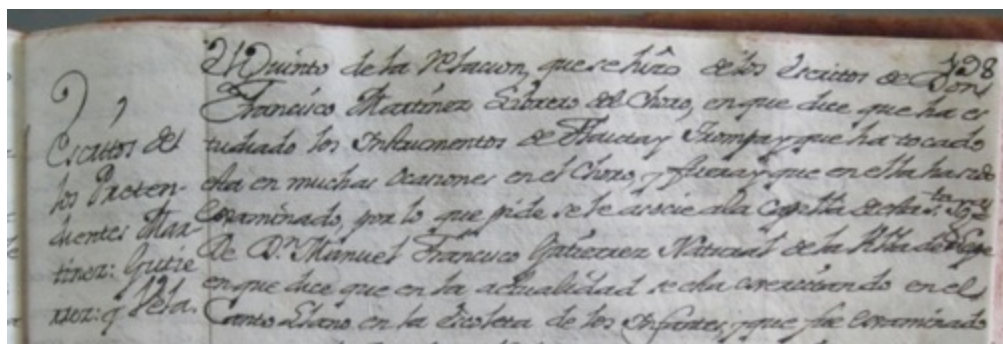 128
Quinto de la relacion, que se hizo de los escritos de Don
Francisco Martinez Librero del Choro, en que dice que ha es
tudiado los Instrumentos de Flauta y Trompa y que ha tocado
esta en muchas ocasiones en el Choro, y fuera y que en ella ha sido
examinado, por lo que pide se le asocie a la Capilla de esta Sta
De Dn. Manuel Francisco Gutierrez Natural de la
en que dice que en la actualidad se esta exercitando en el
Canto Llano en la Escoleta de los Infantes, y que fue examinado
Escritos del
los Preten-
dientes Mar-
tinez: Gutie
rrez: y Vela.